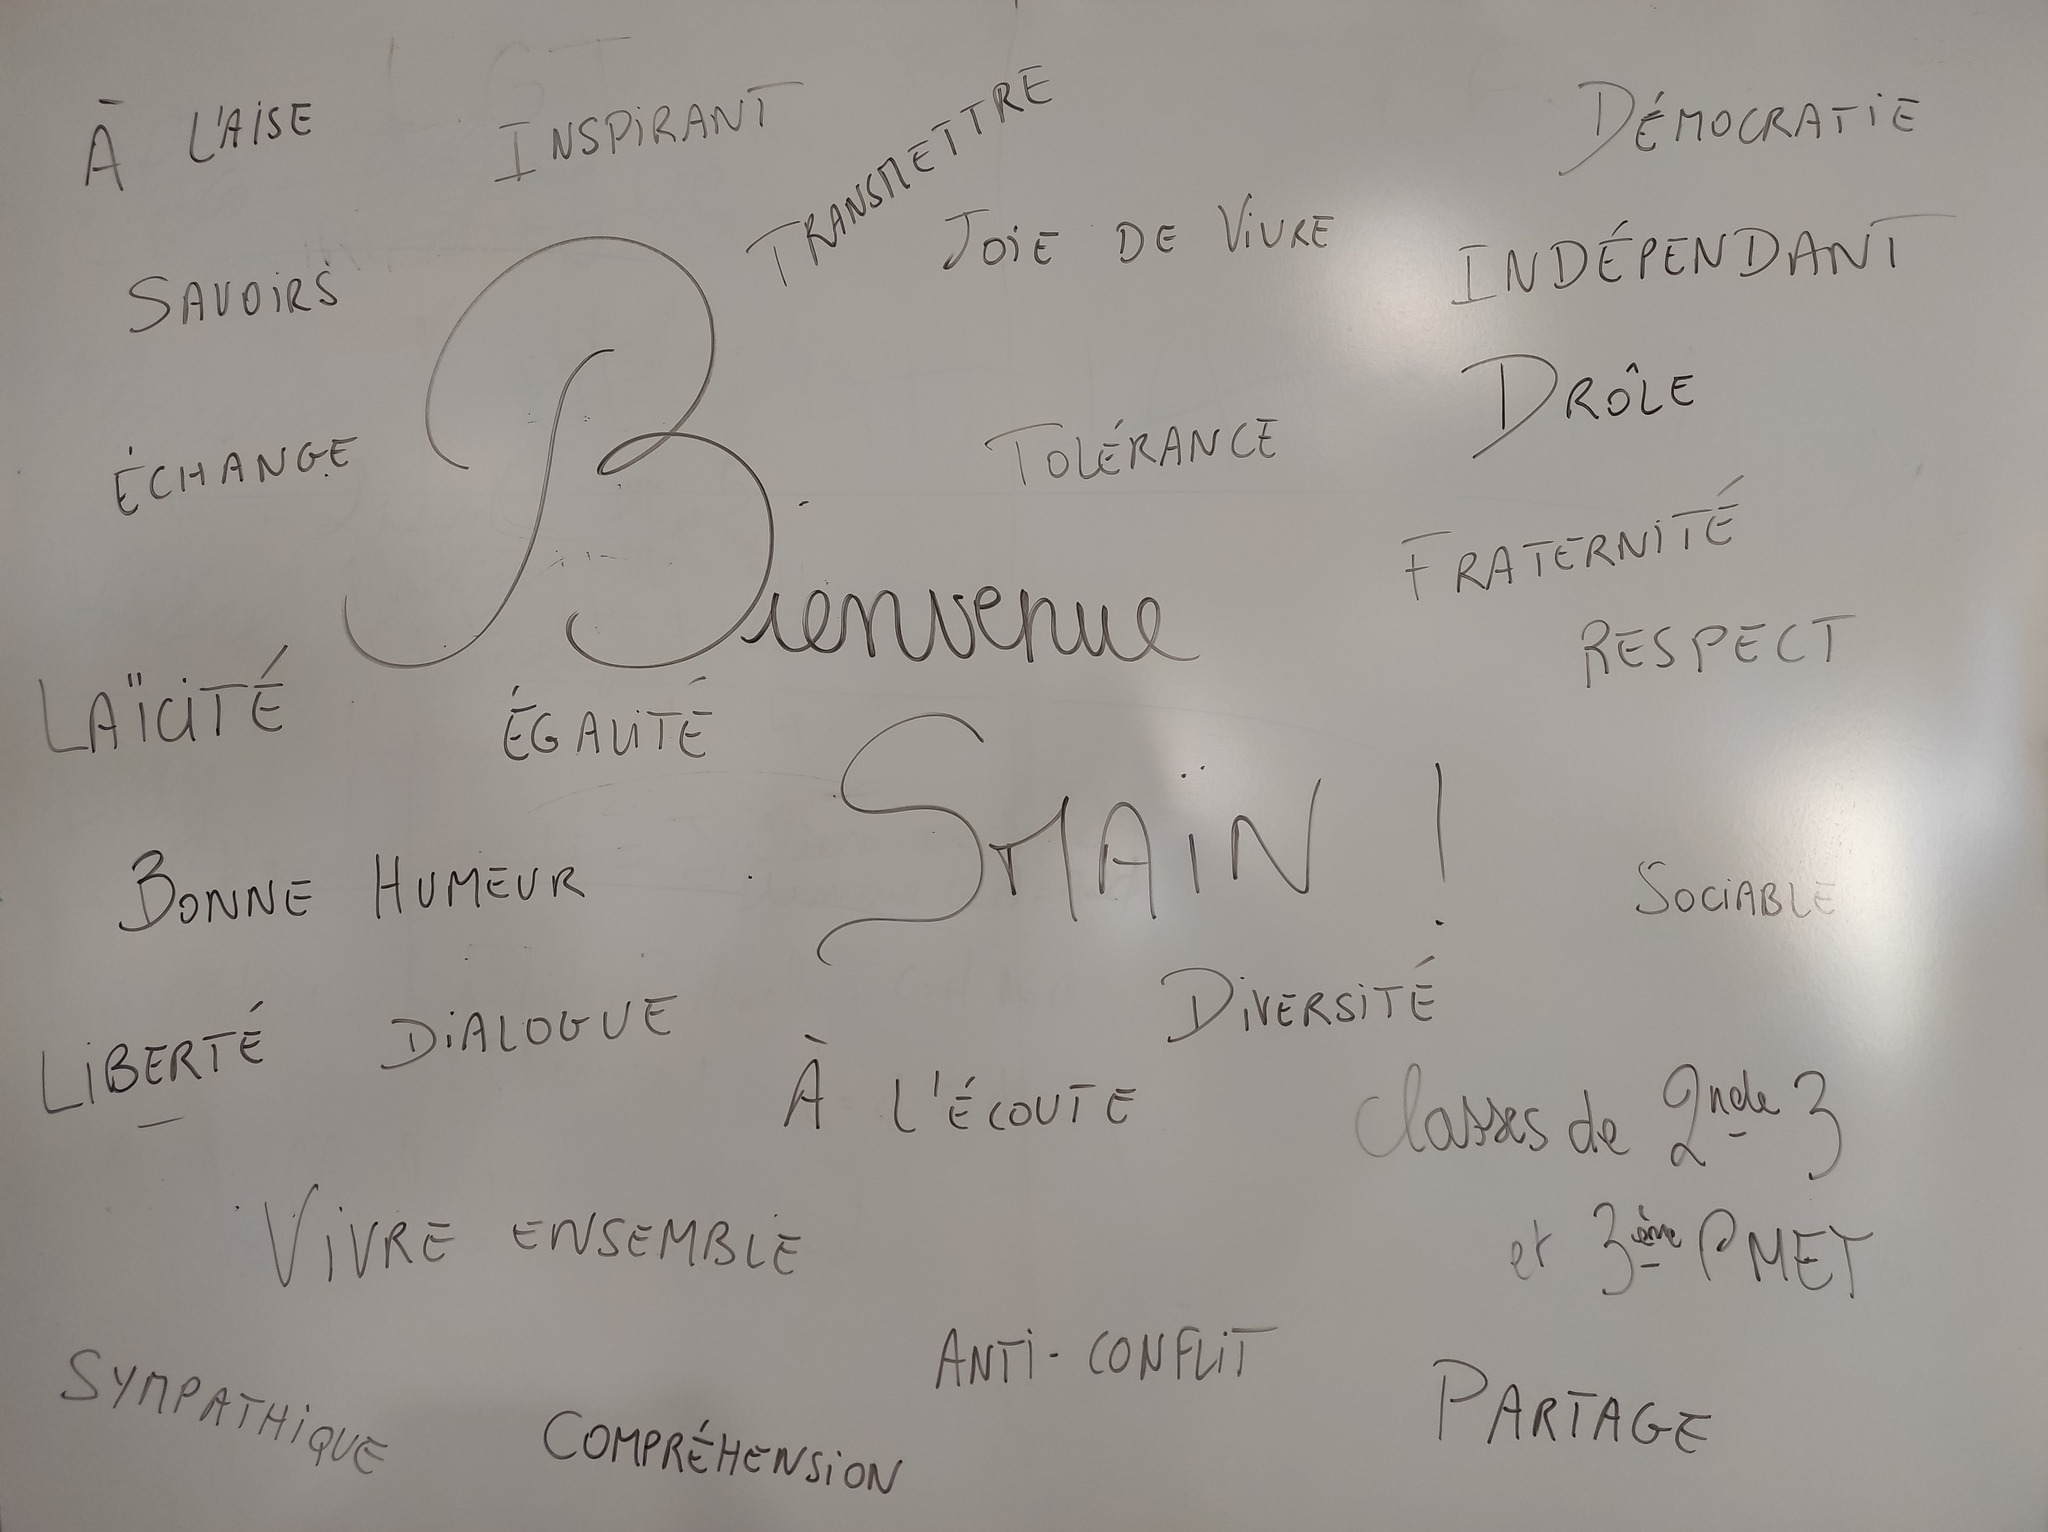 À L'AISE
INSPIRANT
TRANSMETTRE
DÉMOCRATIE
JOIE DE VIVRE
INDÉPENDANT
SAVOIRS
DRÔLE
ÉCHANGE
TOLÉRANCE
FRATERNITÉ
Bienvenue
RESPECT
LAÏCITÉ
ÉGALITÉ
SMAÏN !
BONNE HUMEUR
SOCIABLE
LIBERTÉ
DIALOGUE
DIVERSITÉ
À L'ÉCOUTE
Classes de 2nde 3
et 3ème PMET
VIVRE ENSEMBLE
ANTI-CONFLIT
SYMPATHIQUE
COMPRÉHENSION
PARTAGE